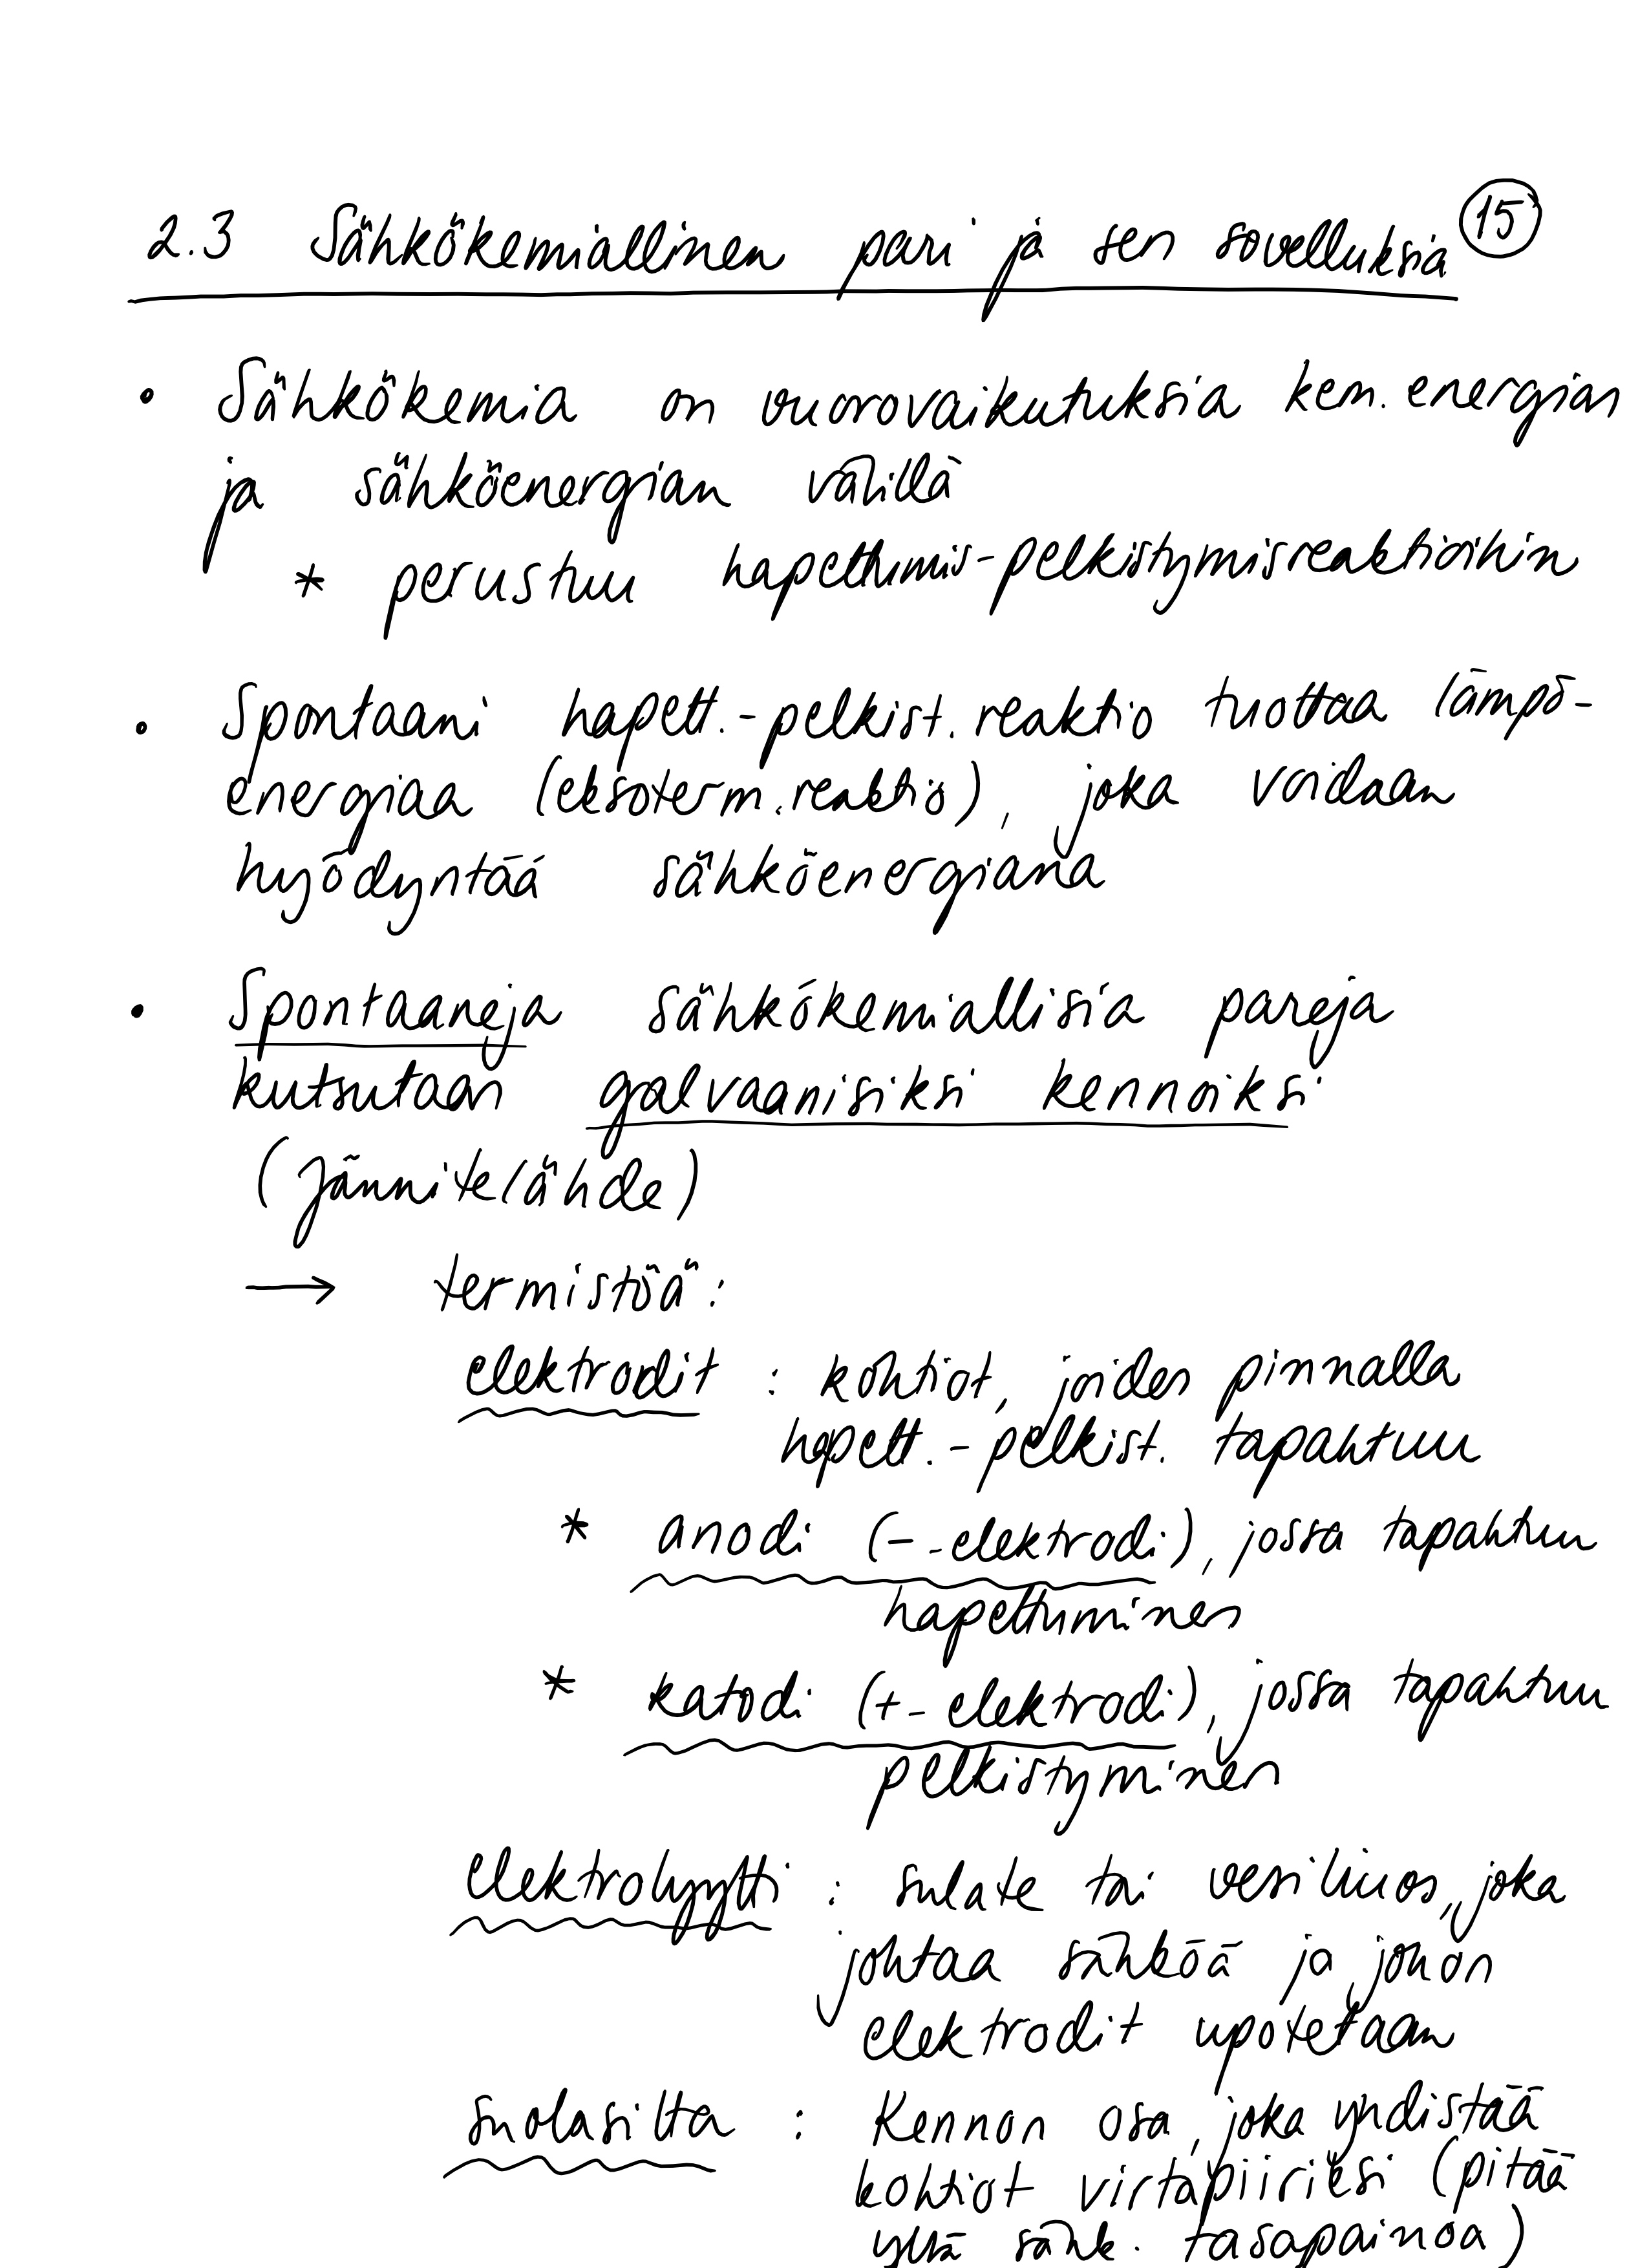 2.3 Sähkökemiallinen pari ja sen sovelluksia 15
• Sähkökemia on vuorovaikutuksia kem. energian
ja sähköenergian välillä
* perustuu hapettumis-pelkistymisreaktioihin
• Spontaani hapett.-pelkist. reaktio tuottaa lämpö-
energiaa (eksoterm. reaktio), joka voidaan
hyödyntää sähköenergiana
• Spontaaneja sähkökemiallisia pareja
kutsutaan galvaanisiksi kennoiksi
(jännitelähde)
→ termistöä:
elektrodit : kohtiot, joiden pinnalla
hapett.-pelkist. tapahtuu
* anodi (– -elektrodi), jossa tapahtuu
hapettuminen
* katodi (+ -elektrodi), jossa tapahtuu
pelkistyminen
elektrolyytti : sulate tai vesiliuos, joka
johtaa sähköä ja johon
elektrodit upotetaan
suolasilta : Kennon osa, joka yhdistää
kohtiot virtapiiriksi (pitää
yllä sähk. tasapainoa)